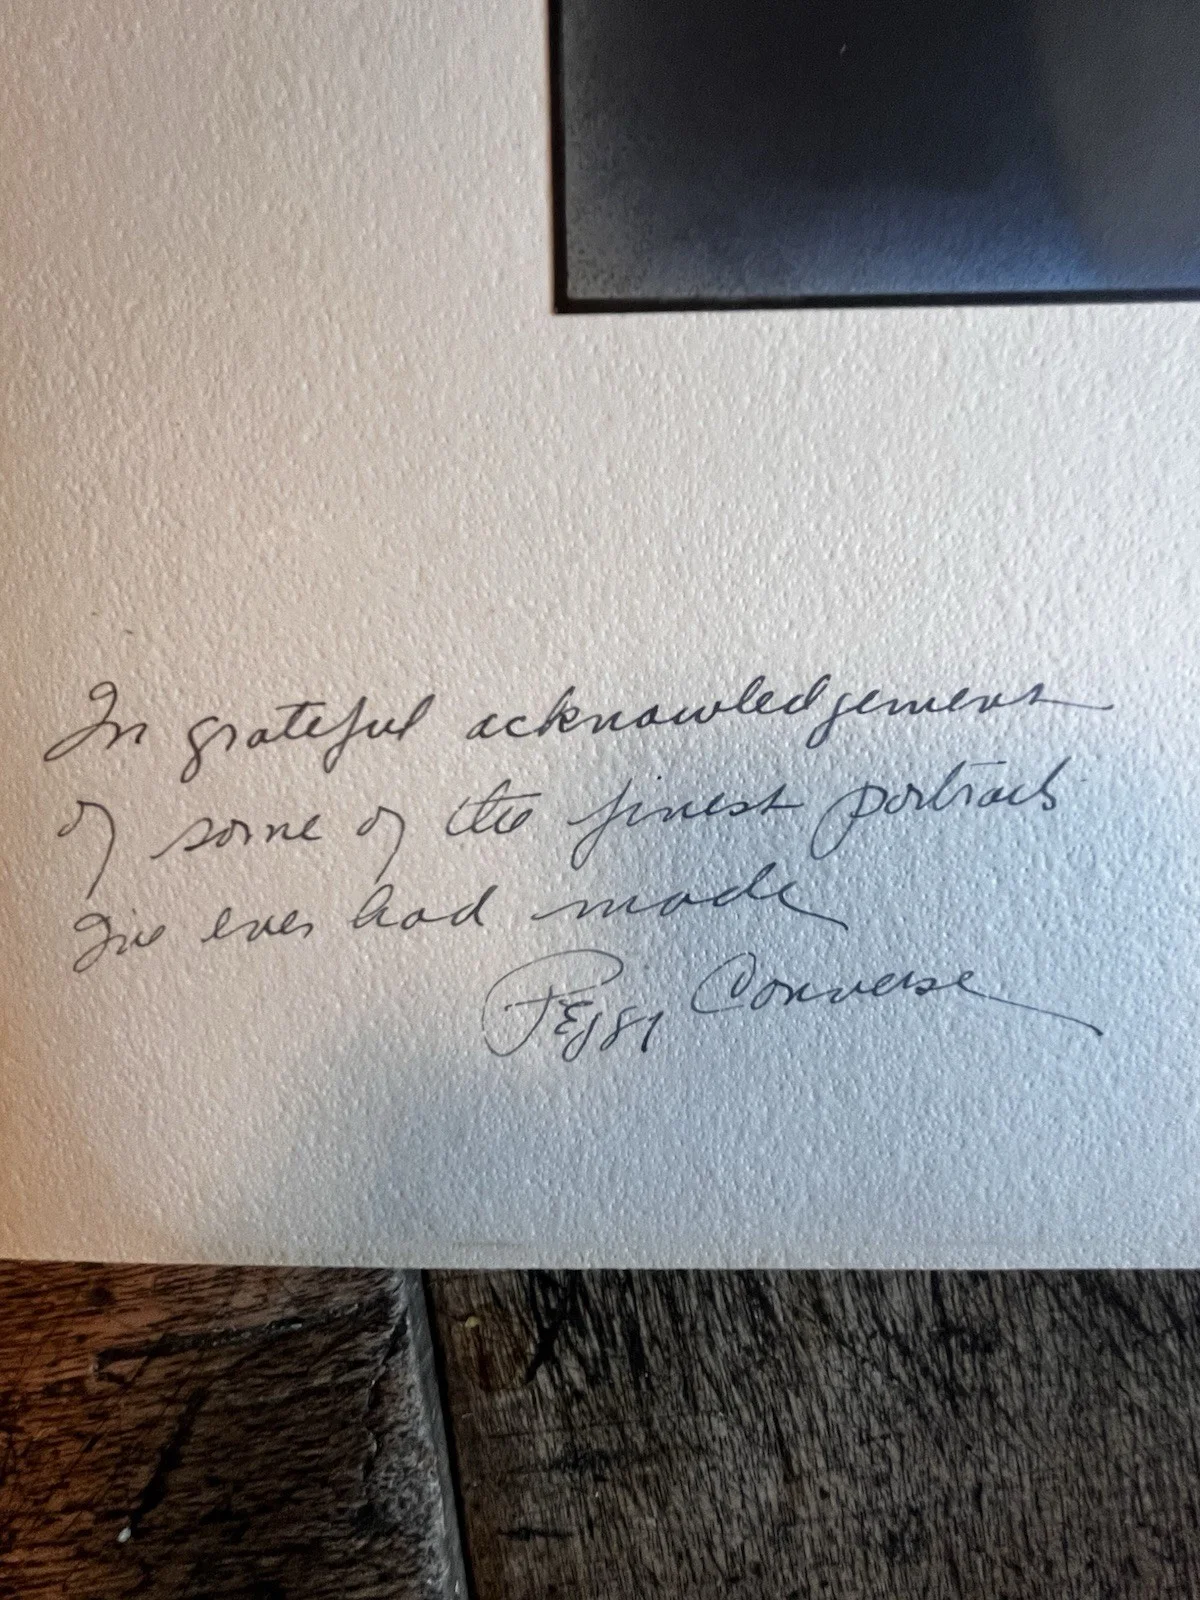 In grateful acknowledgement
of some of the finest portraits
I've ever had made
Peggy Converse